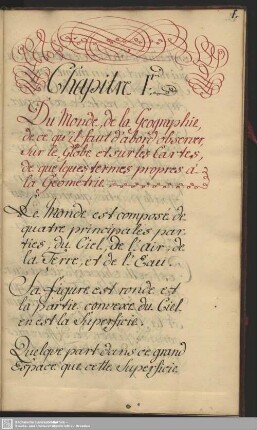 1.
Chapitre 1.r
Du Monde, de la Geographie,
de ce qu'il faut d'abord observer
sur le Globe et sur les Cartes,
de quelques termes propres à
la Geometrie
Le Monde est composé de
quatre principales par-
ties; du Ciel, de l'air, de
la Terre, et de l'Eau.
Sa figure est ronde et
la partie convexe du Ciel
en est la Superficie.
Quelque part dans ce grand
Espace que cette Superficie